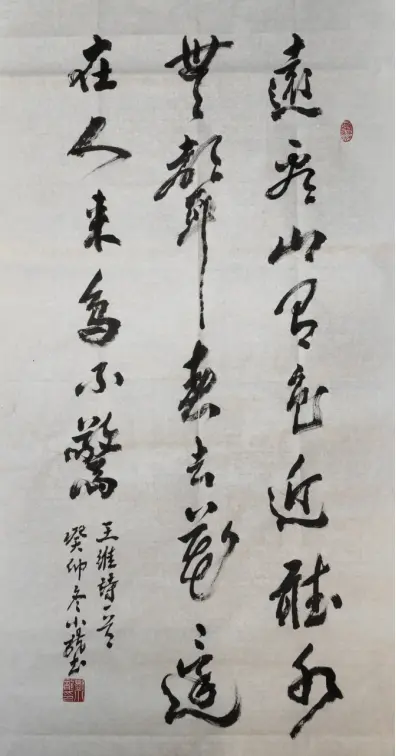 遠看山有色近聽水
無聲春去花還
在人來鳥不驚
王維詩一首
癸卯冬小書